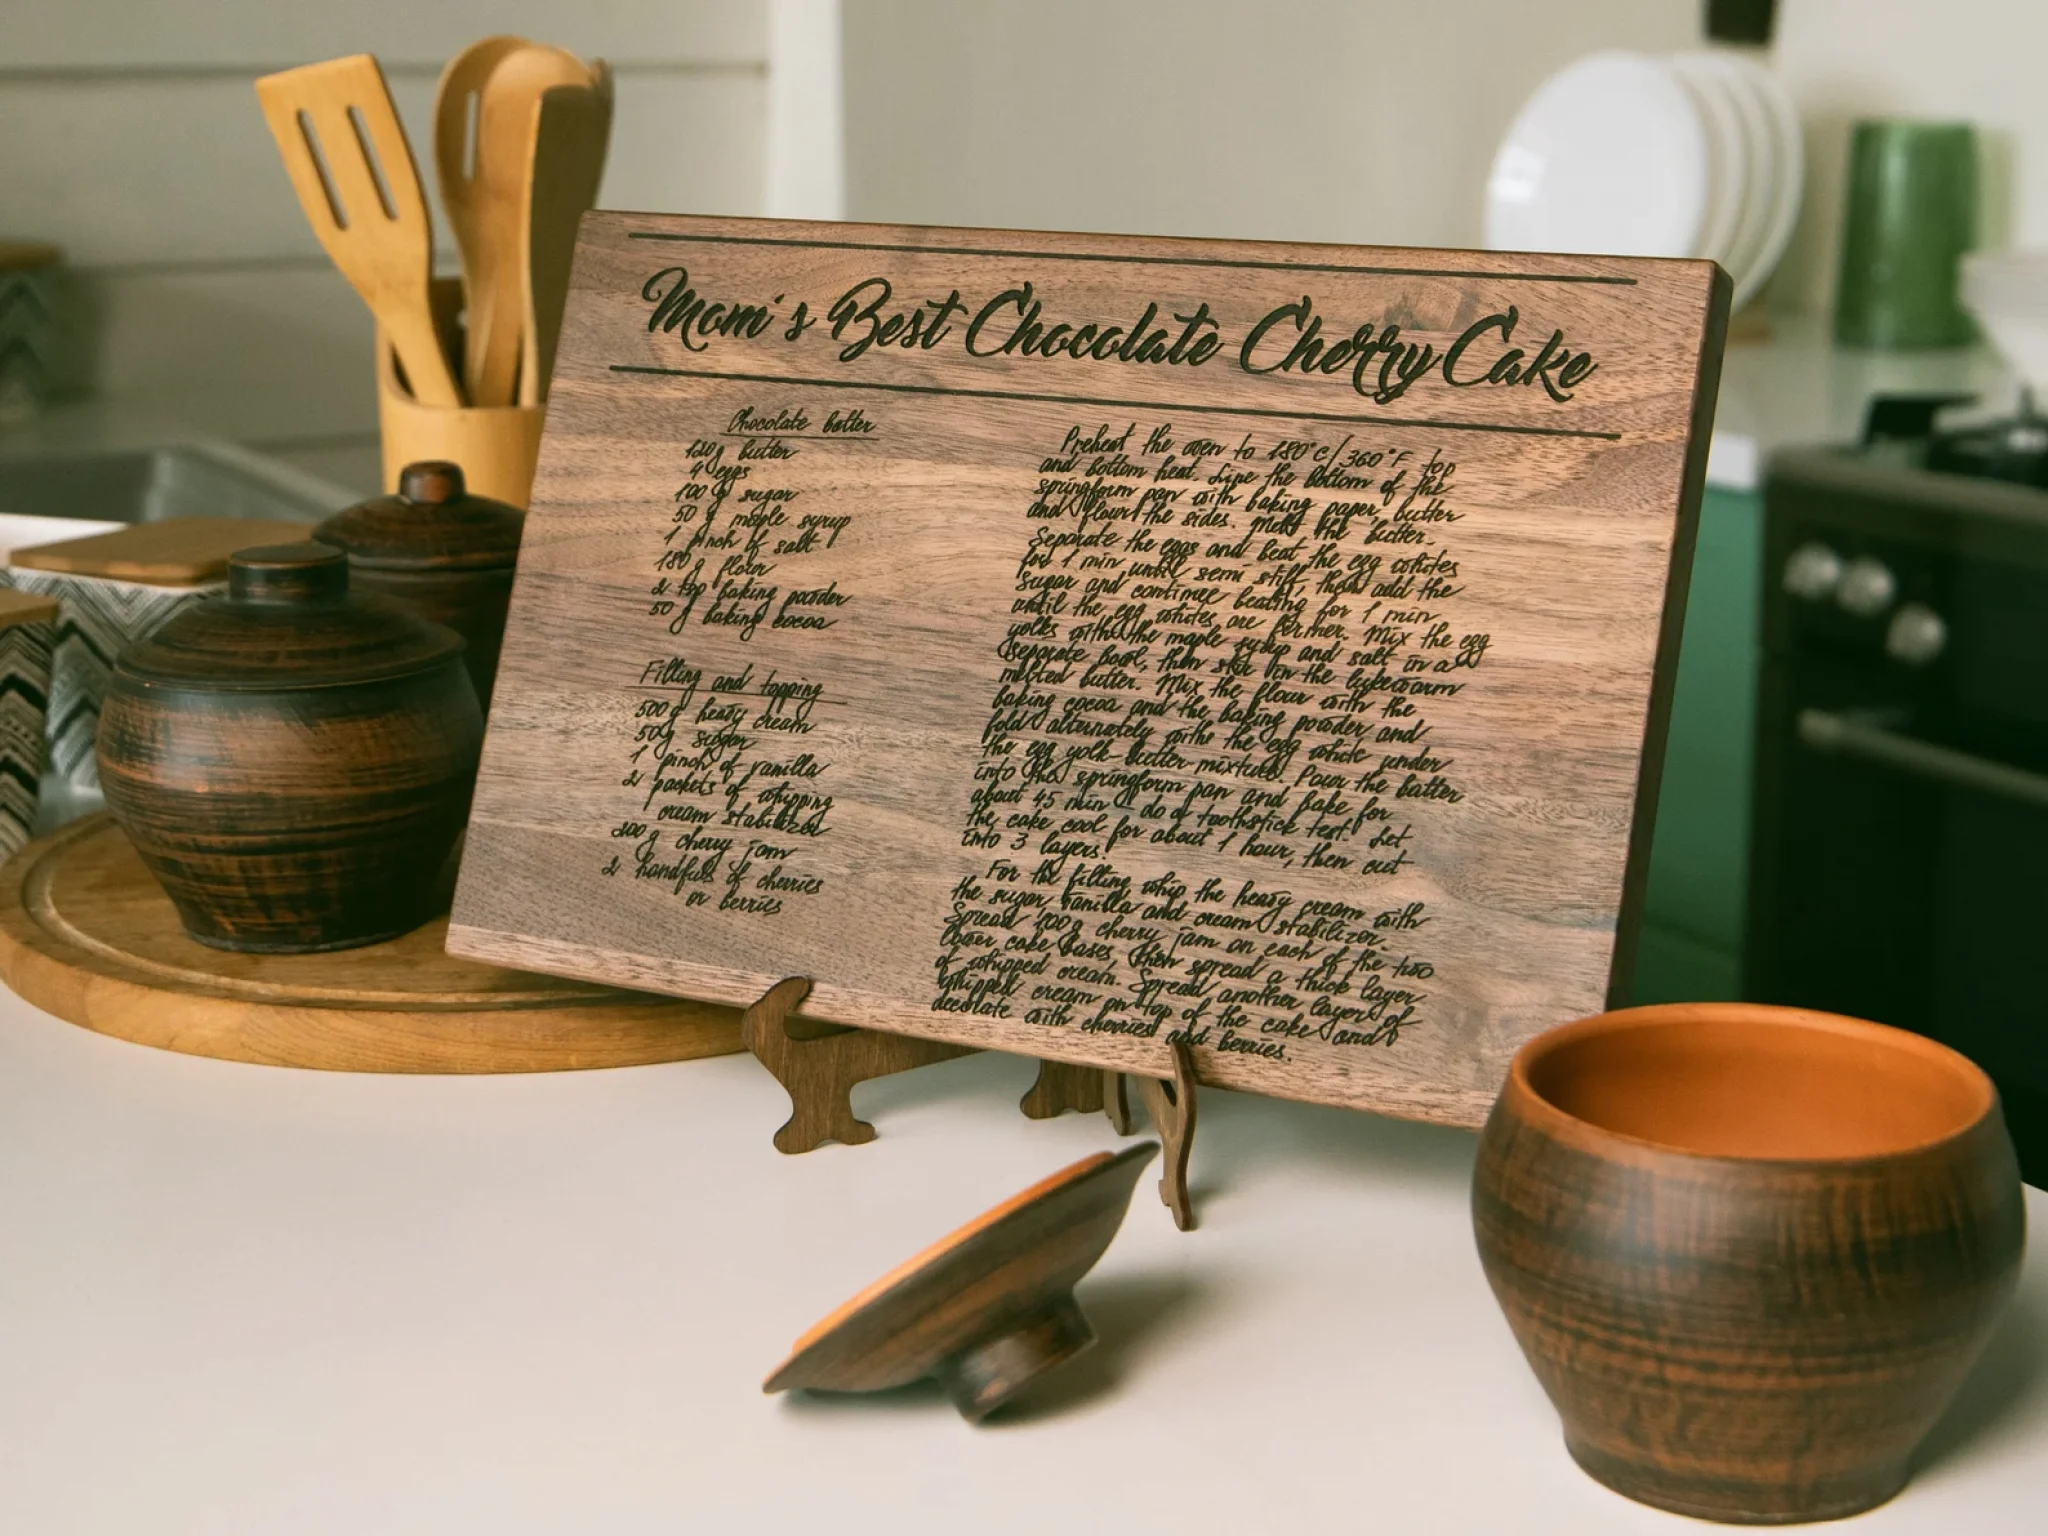 Mom's Best Chocolate Cherry Cake
Chocolate batter
120g butter
4 eggs
100 g sugar
50 g maple syrup
1 pinch of salt
180 g flour
2 tsp baking powder
50 g baking cocoa
Filling and topping
500g heavy cream
50g sugar
1 pinch of vanilla
2 packets of whipping
cream stabilizer
200 g cherry jam
2 handfuls of cherries
or berries
Preheat the oven to 180°C/360°F top
and bottom heat. Line the bottom of the
springform pan with baking paper, butter
and flour the sides. Melt the butter.
Separate the eggs and beat the egg whites
for 1 min until semi stiff, then add the
sugar and continue beating for 1 min
until the egg whites are firmer. Mix the egg
yolks with the maple syrup and salt in a
separate bowl, then stir in the lukewarm
melted butter. Mix the flour with the
baking cocoa and the baking powder and
fold alternately withe the egg white under
the egg yolk-butter mixture. Pour the batter
into the springform pan and bake for
about 45 min - do a toothstick test. Let
the cake cool for about 1 hour, then cut
into 3 layers.
For the filling whip the heavy cream with
the sugar, vanilla and cream stabilizer.
Spread 100g cherry jam on each of the two
lower cake bases, then spread a thick layer
of whipped cream. Spread another layer of
whipped cream on top of the cake and
decorate with cherries and berries.